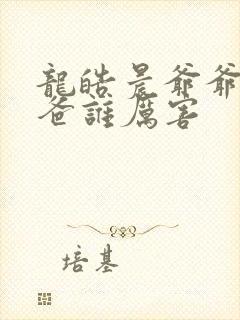 龍皓晨爺爺
爸誰厲害
培基